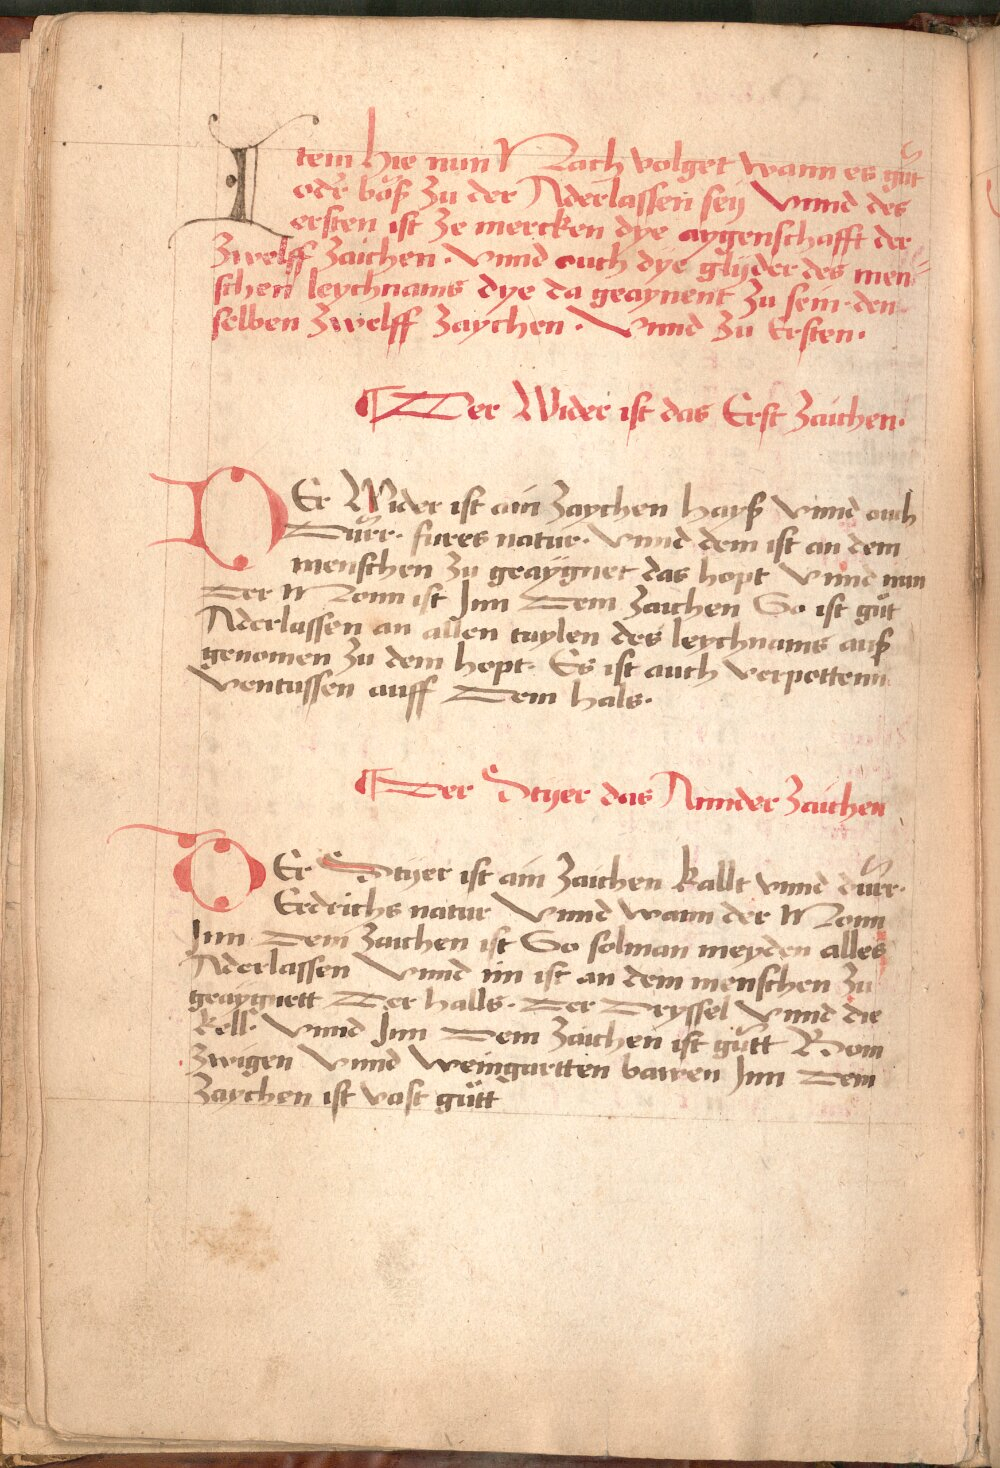 Item hie nun Nach volget wann es gůt
oder böß Zu der Aderlassen sey Vnnd des
ersten ist Ze mercken dye aygenschafft der
Zwelff Zaichen. Vnnd ouch dye glyder des men
schen leychnams dye da geaynent Zu sein den
selben Zwelff Zaychen. Vnnd Zu Ersten.
¶ Der Wider ist das Erst Zaichen.
DEr Wider ist ain Zaychen hayß Vnnd ouch
Dürr. fures natur. Vnnd dem ist an dem
menschen Zu geaygnet das hopt Vnnd nun
Der Monn ist Jnn Dem Zaichen So ist gůt
Aderlassen an allen taylen des leychnams auß
genomen Zu dem hopt. Es ist auch verpottenn
ventussen auff Dem hals.
¶ Der Styer das Annder Zaichen
DEr Styer ist ain Zaichen kallt vnnd dürr.
Erdrichs natur Vnnd wann der Monn
Jnn Dem Zaichen ist So solman meyden alles
Aderlassen Vnnd im ist an dem menschen Zu
geaygnett Der halls. Der Dryssel Vnnd die
kell. Vnnd Jnn Dem Zaichen ist gůtt Bom
Zwigen Vnnd weingartten bawen Jnn Dem
Zaychen ist vast gůtt